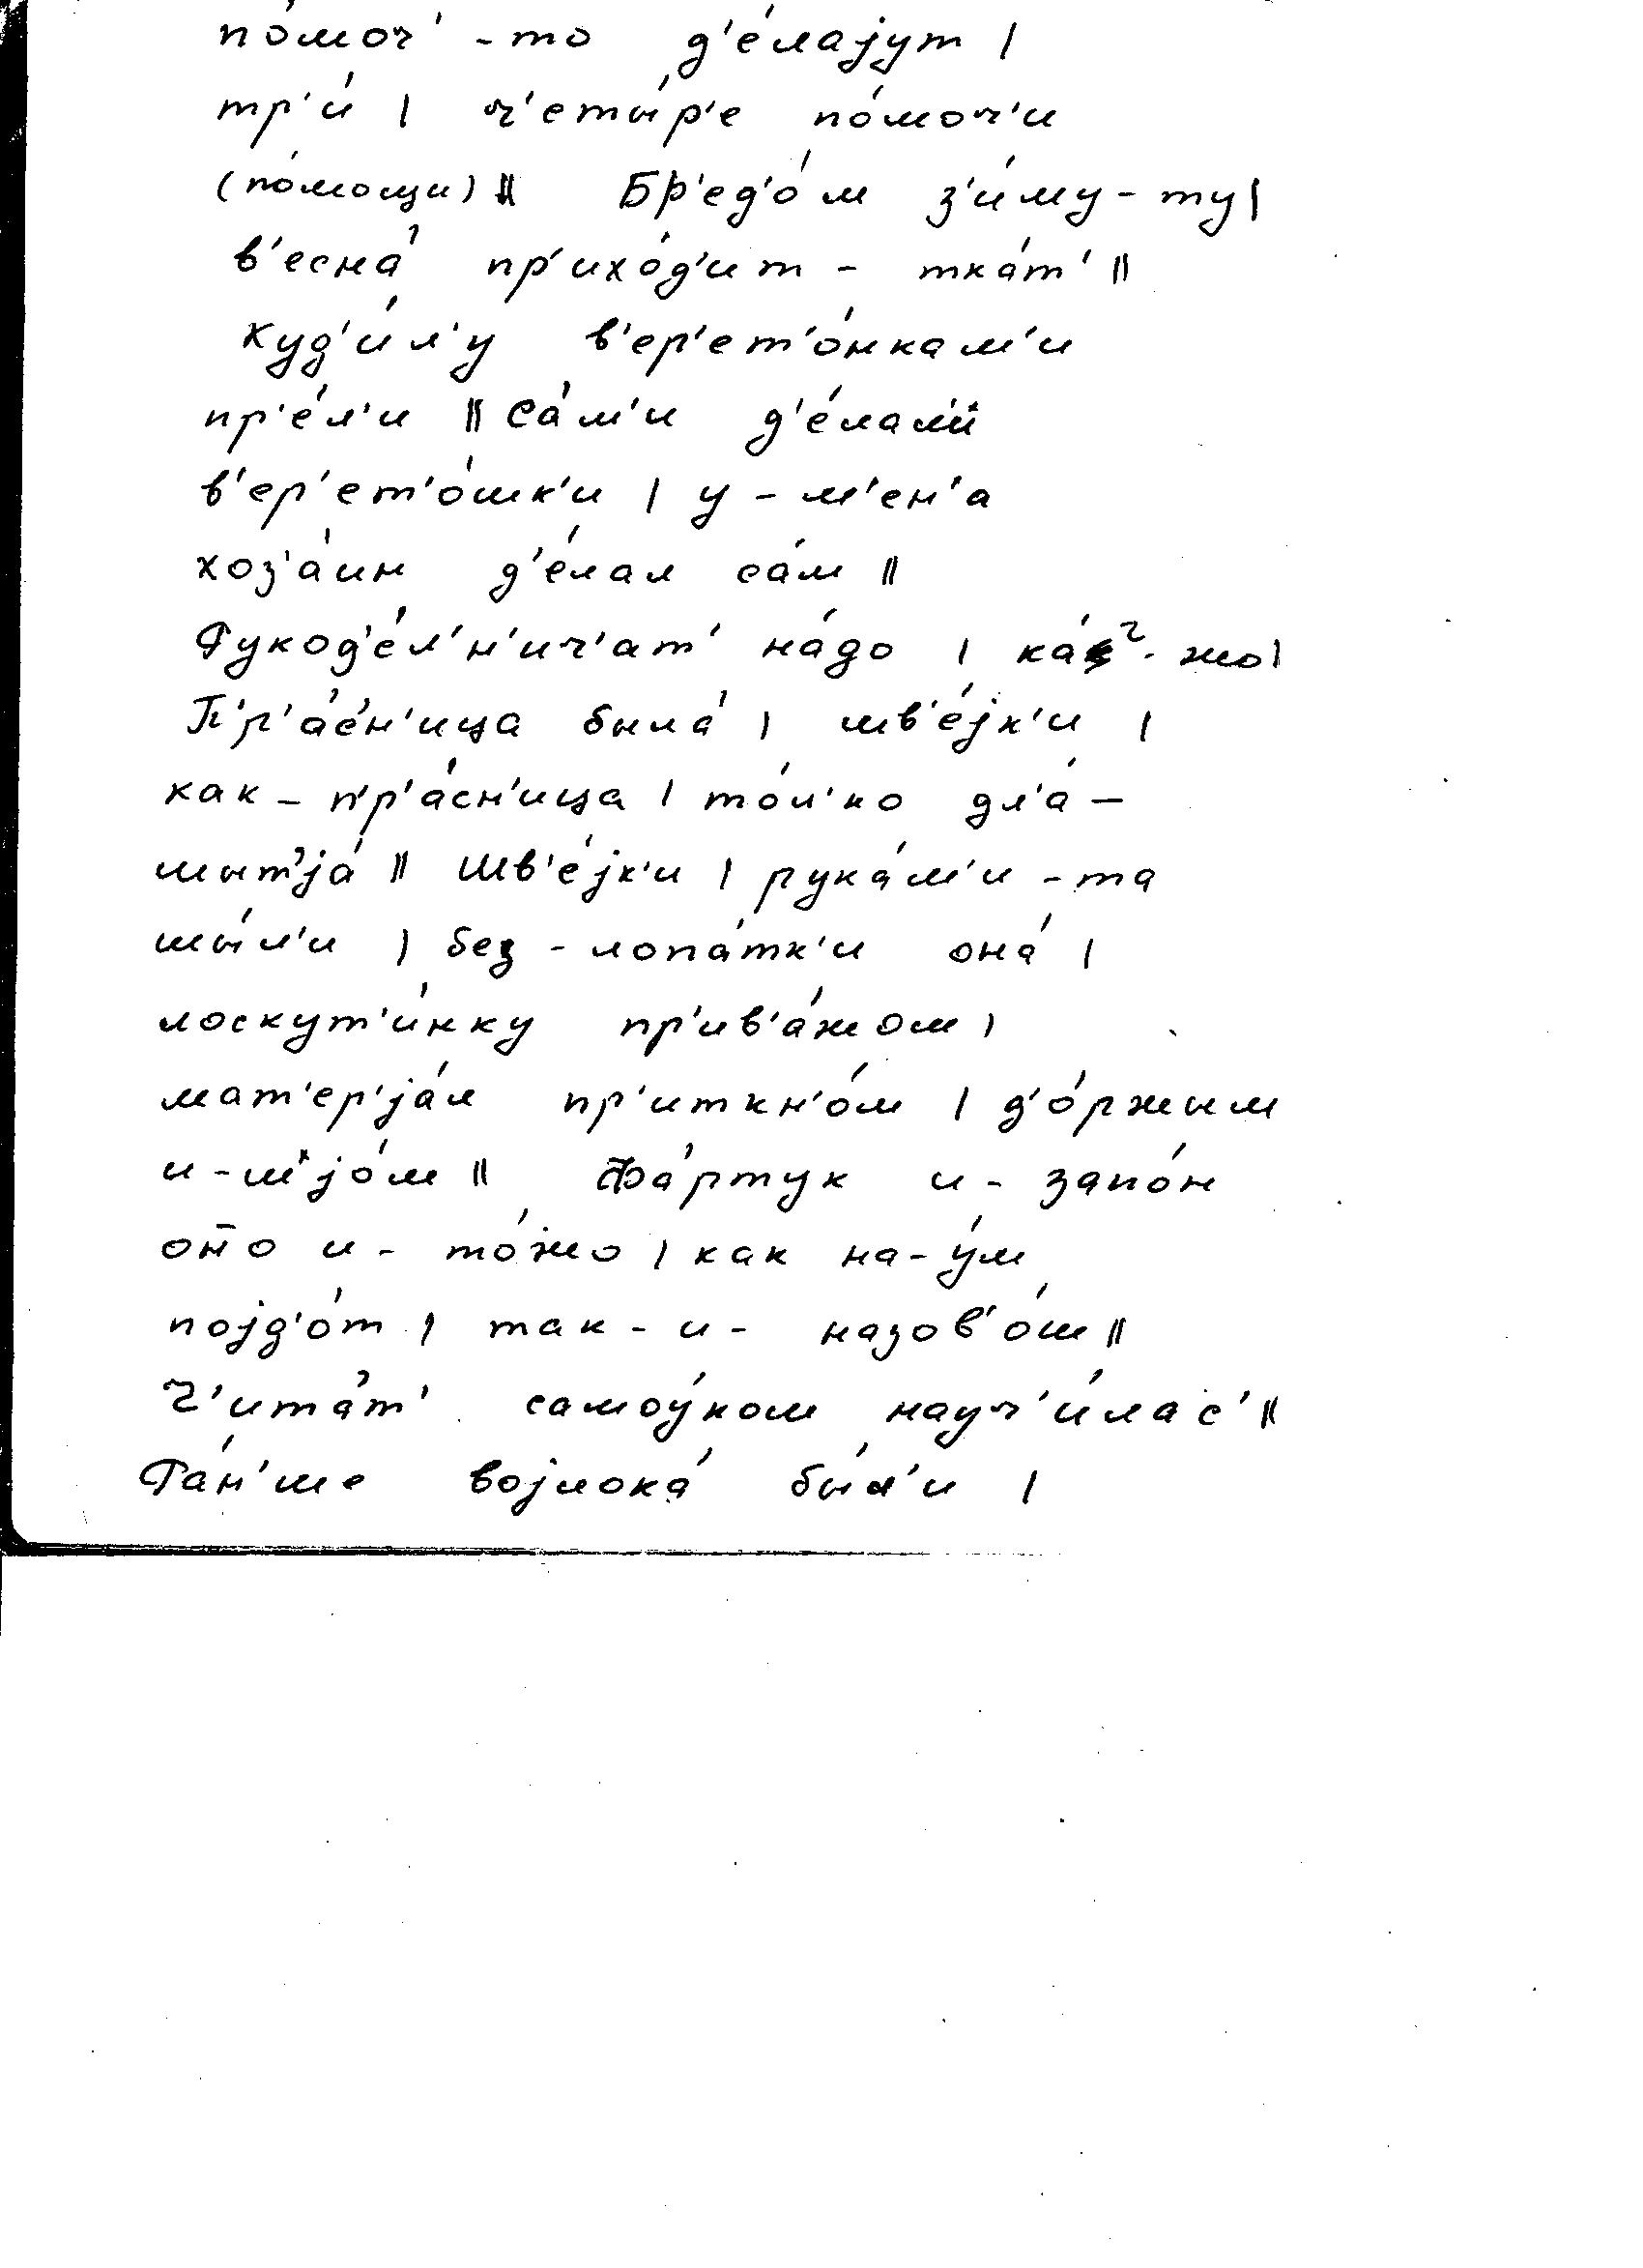 по́моч' - то д'е́лајут |
тр'и́ | ч'еты́р'е по́моч'и
(по́мощи) || Бр'ед'о́м з'и́му - ту |
в'есна́ пр'ихо́д'ит - тка́т' ||
куд'и́л'у в'ер'ет'о́нкам'и
пр'е́л'и || Са́м'и д'е́лал'и
в'ер'ет'о́шк'и | у - м'ен'а
хоз'а́ин д'е́лал са́м ||
Рукод'е́л'н'ич'ат' на́до | - жо |
П'р'а́с'н'ица была́ | шв'е́јк'и |
как - п'р'а́сн'ица | то́л'ко дл'а́ -
шыт'ја́ || Шв'е́јк'и | рука́м'и - та
шы́л'и | без - лопа́тк'и она́ |
лоскут'и́нку пр'ив'а́жом |
мат'ер'ја́л пр'иткн'о́м | д'о́ржым
и - шјо́м || Фа́ртук и - запо́н
оно и - то́жо | как на - у́м
појд'о́т | так - и - назов'о́ш ||
Ч'ита́т' самоу́ком науч'и́лас' ||
Ра́н'ше војлока́ бы́л'и |